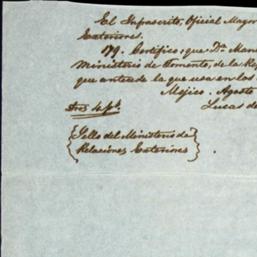 El Infrascrito, Oficial Mayor
Exteriores.
179. Certifico: que Dn. Man
Ministerio de Fomento, de la Re
que antecede la que usa en los
Mejico. Agosto
Dros 4 ps. Lucas de
Sello del Ministerio de
Relaciones Exteriores